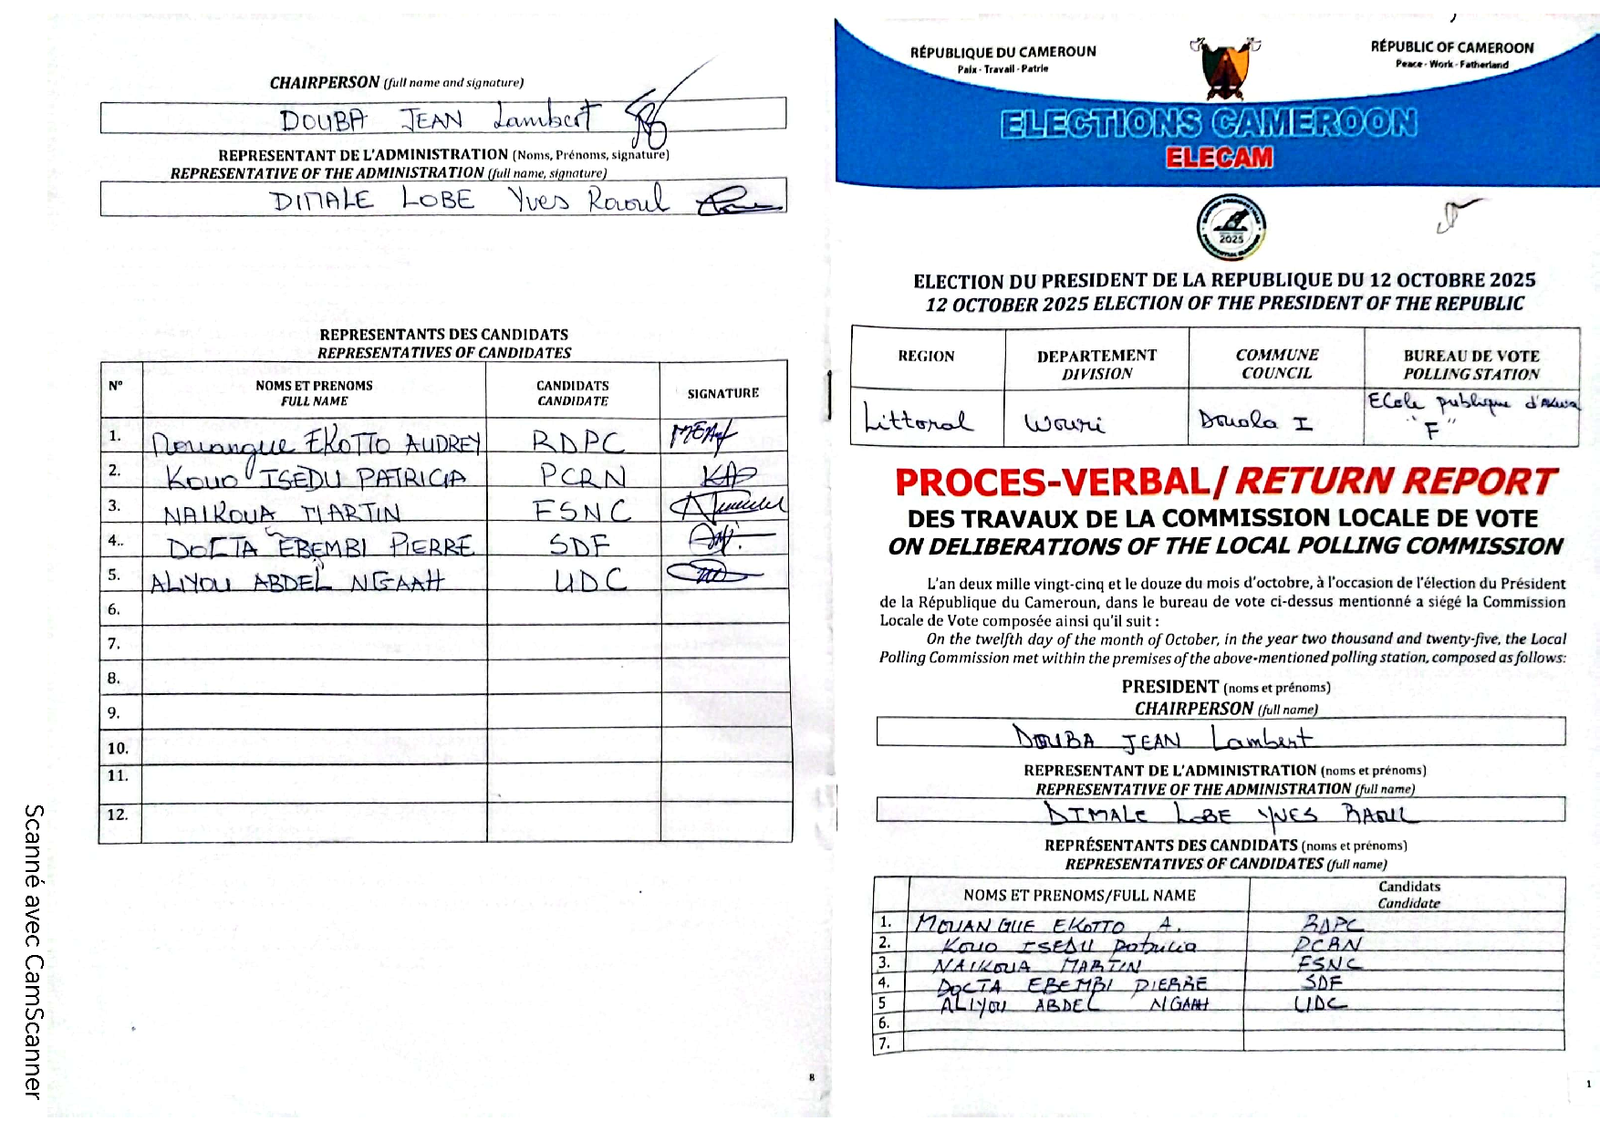 CHAIRPERSON (full name and signature)
DOUBA JEAN Lambert
REPRESENTANT DE L'ADMINISTRATION (Noms, Prénoms, signature)
REPRESENTATIVE OF THE ADMINISTRATION (full name, signature)
DIMALE LOBE Yves Raoul
REPRESENTANTS DES CANDIDATS
REPRESENTATIVES OF CANDIDATES
N° NOMS ET PRENOMS CANDIDATS SIGNATURE
FULL NAME CANDIDATE
1. Mouangue EKOTTO AUDREY RDPC
2. KOUO ISEDU PATRICIA PCRN
3. NAIKOUA MARTIN FSNC
4.. DOCTA EBEMBI PIERRE SDF
5. ALIYOU ABDEL NGAAH UDC
6.
7.
8.
9.
10.
11.
12.
8
Scanné avec CamScanner
RÉPUBLIQUE DU CAMEROUN
Paix - Travail - Patrie
RÉPUBLIC OF CAMEROON
Peace - Work - Fatherland
ELECTIONS CAMEROON
ELECAM
2025
ELECTION DU PRESIDENT DE LA REPUBLIQUE DU 12 OCTOBRE 2025
12 OCTOBER 2025 ELECTION OF THE PRESIDENT OF THE REPUBLIC
REGION DEPARTEMENT COMMUNE BUREAU DE VOTE
DIVISION COUNCIL POLLING STATION
Littoral Wouri Douala I Ecole publique d'Akwa
"F"
PROCES-VERBAL/ RETURN REPORT
DES TRAVAUX DE LA COMMISSION LOCALE DE VOTE
ON DELIBERATIONS OF THE LOCAL POLLING COMMISSION
L'an deux mille vingt-cinq et le douze du mois d'octobre, à l'occasion de l'élection du Président
de la République du Cameroun, dans le bureau de vote ci-dessus mentionné a siégé la Commission
Locale de Vote composée ainsi qu'il suit :
On the twelfth day of the month of October, in the year two thousand and twenty-five, the Local
Polling Commission met within the premises of the above-mentioned polling station, composed as follows:
PRESIDENT (noms et prénoms)
CHAIRPERSON (full name)
DOUBA JEAN Lambert
REPRESENTANT DE L'ADMINISTRATION (noms et prénoms)
REPRESENTATIVE OF THE ADMINISTRATION (full name)
DIMALE LOBE YVES RAOUL
REPRÉSENTANTS DES CANDIDATS (noms et prénoms)
REPRESENTATIVES OF CANDIDATES (full name)
NOMS ET PRENOMS/FULL NAME Candidats
Candidate
1. MOUANGUE EKOTTO A. RDPC
2. KOUO ISEDU Patricia PCRN
3. NAIKOUA MARTIN FSNC
4. DOCTA EBEMBI PIERRE SDF
5 ALIYOU ABDEL NGAAH UDC
6.
7.
1